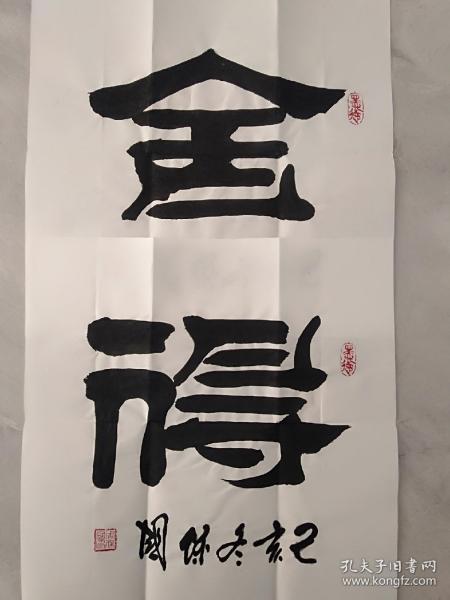 舍
得
己亥冬保國
孔夫子旧书网
www.kongfz.com